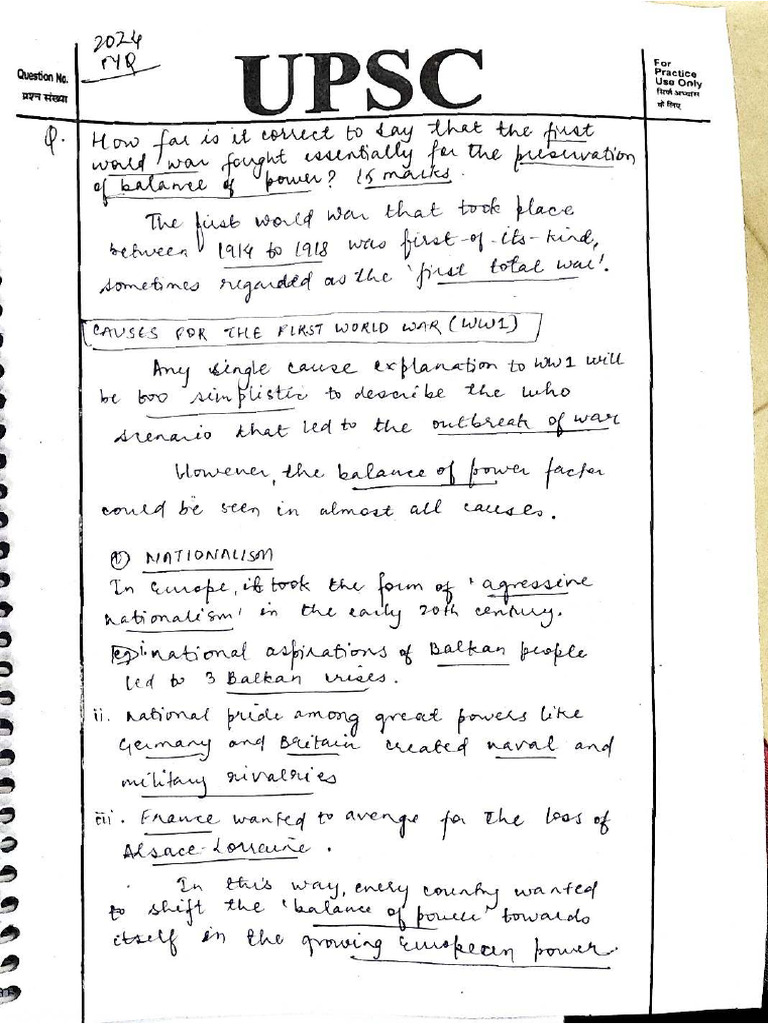 2024
PYQ
Question No.
प्रश्न संख्या
UPSC
For
Practice
Use Only
सिर्फ अभ्यास
के लिए
Q. How far is it correct to say that the first
world war fought essentially for the preservation
of balance of power? 15 marks.
The first world war that took place
between 1914 to 1918 was first-of-its-kind,
sometimes regarded as the 'first total war'.
CAUSES FOR THE FIRST WORLD WAR (WW1)
Any single cause explanation to WW1 will
be too simplistic to describe the who
scenario that led to the outbreak of war
However, the balance of power factor
could be seen in almost all causes.
① NATIONALISM
In Europe, it took the form of 'agressive
nationalism' in the early 20th century.
eg i. national aspirations of Balkan people
led to 3 Balkan crises.
ii. National pride among great powers like
Germany and Britain created naval and
military rivalries
iii. France wanted to avenge for the loss of
Alsace-Lorraine.
In this way, every country wanted
to shift the 'balance of power' towards
itself in the growing European power.